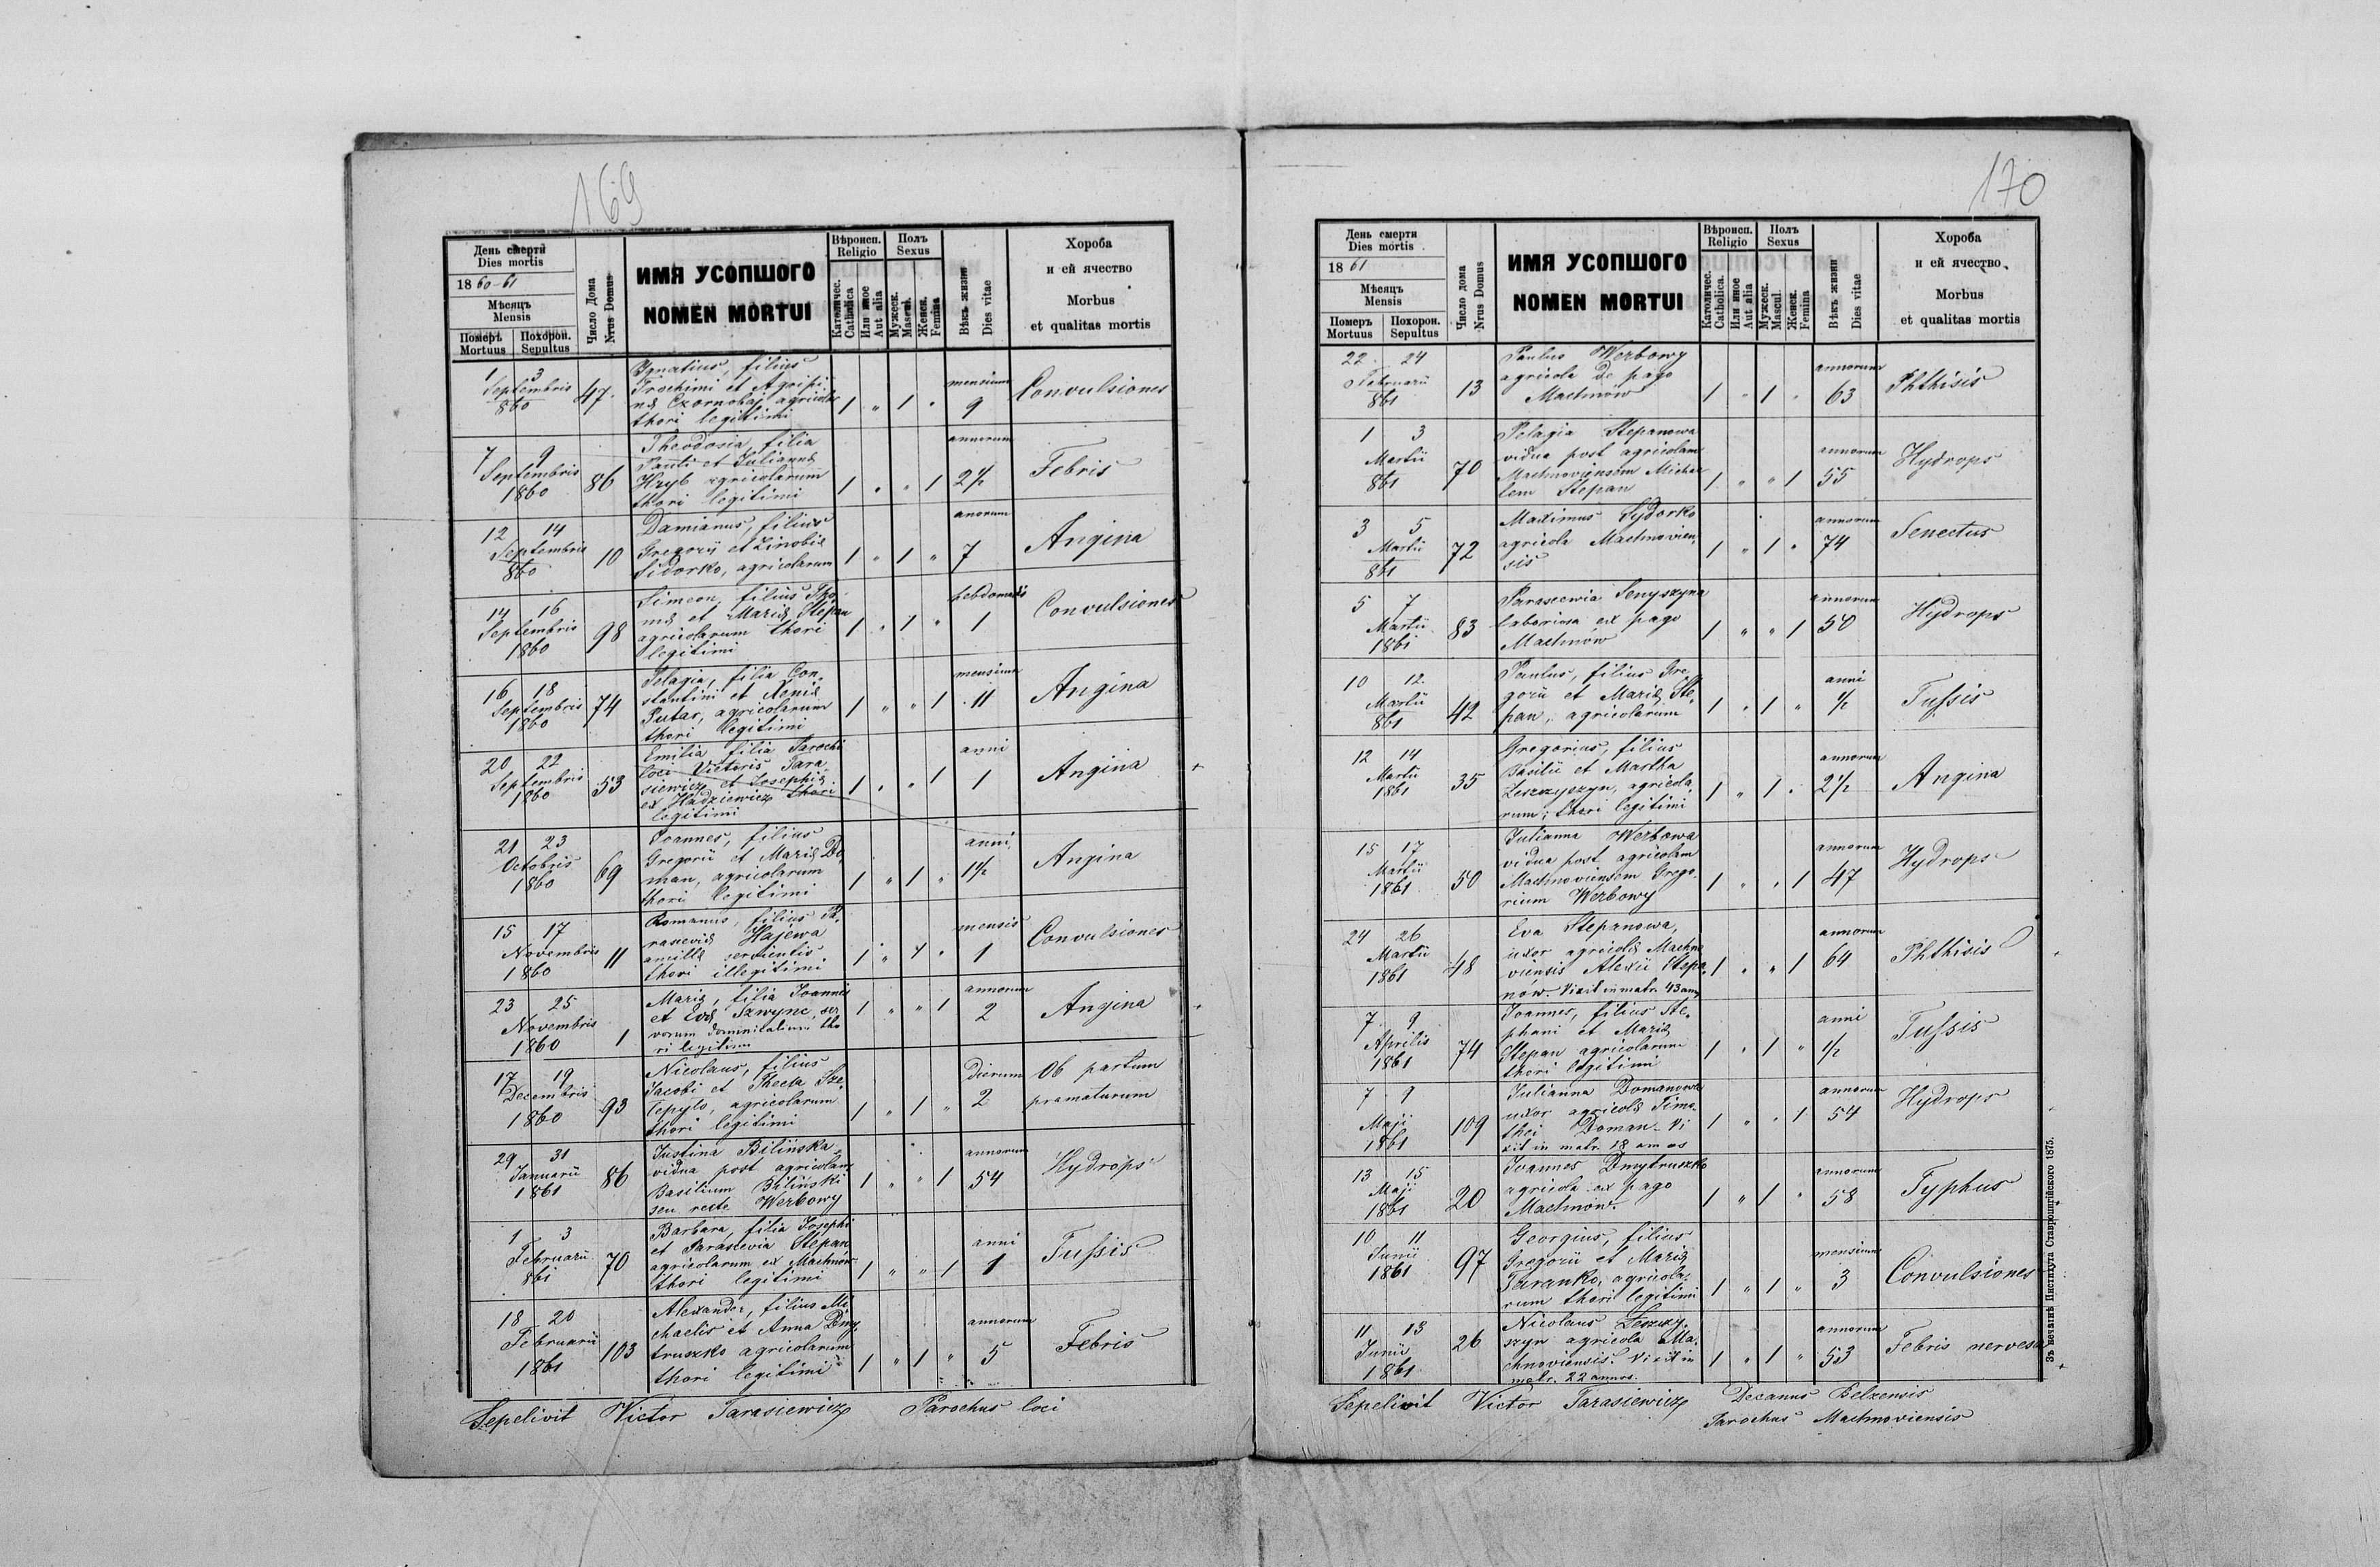 169
День смерти
Dies mortis
1860-61
Мѣсяцъ
Mensis
Померъ
Mortuus
Похорон.
Sepultus
Число Дома
Nrus Domus
ИМЯ УСОПШОГО
NOMEN MORTUI
Вѣроисп.
Religio
Католичес.
Catholica
Или иное
Aut alia
Полъ
Sexus
Мужеск.
Mascul.
Женск.
Femina
Вѣкъ жизни
Dies vitae
Хороба
и ей ячество
Morbus
et qualitas mortis
1 3
Septembris
860
47
Ignatius, filius
Trochimi et Agripi-
næ Czornobaj agricolæ
thori legitimi
1 " 1 "
mensium
9
Convulsiones
7 9
Septembris
1860
86
Theodosia, filia
Pauli et Juliannæ
Hryb agricolarum
thori legitimi
1 " " 1
annorum
2½
Febris
12 14
Septembris
860
10
Damianus, filius
Gregorij et Zinobiæ
Sidorko, agricolarum
1 " 1 "
anorum
7
Angina
14 16
Septembris
1860
98
Simeon, filius Tho-
mæ et Mariæ Stepan
agricolarum thori
legitimi
1 " 1 "
hebdomadis
1
Convulsiones
16 18
Septembris
1860
74
Pelagia, filia Con-
stantini et Xeniæ
Putas, agricolarum
thori legitimi
1 " " 1
mensium
11
Angina
20 22
Septembris
1860
53
Emilia filia Parochi
loci Victoris Tara-
siewicz et Josephiæ
ex Hadziewicz thori
legitimi
1 " " 1
anni
1
Angina
21 23
Octobris
1860
69
Joannes, filius
Gregorii et Mariæ Do-
man, agricolarum
thori legitimi
1 " 1 "
anni
1½
Angina
15 17
Novembris
1860
11
Romanus, filius Pa-
rasceviæ Hajewa
ancillæ servientis
thori illegitimi
1 " 1 "
mensis
1
Convulsiones
23 25
Novembris
1860
1
Maria, filia Joannis
et Evæ Szwync, ser
vorum dominicalium tho
ri legitimi
1 " " 1
annorum
2
Angina
17 19
Decembris
1860
93
Nicolaus, filius
Jacobi et Thecla Sze-
lepylo, agricolarum
thori legitimi
1 " 1 "
Dierum
2
Ob partum
pramaturum
29 31
Januarii
1861
86
Justina Bilińska
vidua post agricolam
Basilium Biliński
seu recte Werbowy
1 " " 1
annorum
54
Hydrops
1 3
Februarii
861
70
Barbara, filia Josephi
et Parascevia Stepan
agricolarum ex Machnów
thori legitimi
1 " " 1
anni
1
Tussis
18 20
Februarii
1861
103
Alexander, filius Mi
chaelis et Anna Dmy
truszko agricolarum
thori legitimi
1 " 1 "
annorum
5
Febris
Sepelivit Victor Tarasiewicz Parochus loci
170
День смерти
Dies mortis
1861
Мѣсяцъ
Mensis
Померъ
Mortuus
Похорон.
Sepultus
Число дома
Nrus Domus
ИМЯ УСОПШОГО
NOMEN MORTUI
Вѣроисп.
Religio
Католичес.
Catholica.
Или иное
Aut alia
Полъ
Sexus
Мужеск.
Mascul.
Женск.
Femina
Вѣкъ жизни
Dies vitae
Хороба
и ей ячество
Morbus
et qualitas mortis
22 24
Februarii
861
13
Paulus Werbowy
agricola de pago
Machnów
1 " 1 "
annorum
63
Phthisis
1 3
Martii
861
70
Pelagia Stepanowa
vidua post agricolam
Machnoviensem Michae
lem Stepan
1 " " 1
annorum
55
Hydrops
3 5
Martii
861
72
Maximus Sydorko
agricola Machnovien-
sis
1 " 1 "
annorum
74
Senectus
5 7
Martii
1861
83
Parascewia Senyszyna
laboriosa ex pago
Machnów
1 " " 1
annorum
50
Hydrops
10 12
Martii
861
42
Paulus, filius Gre-
gorii et Mariæ Ste-
pan, agricolarum
1 " 1 "
anni
½
Tussis
12 14
Martii
1861
35
Gregorius, filius
Basilii et Martha
Leszczyszyn, agricola-
rum, thori legitimi
1 " 1 "
annorum
2½
Angina
15 17
Martii
1861
50
Julianna Werbowa
vidua post agricolam
Machnoviensem Grego-
rium Werbowy
1 " " 1
annorum
47
Hydrops
24 26
Martii
1861
48
Eva Stepanowa,
uxor agricolæ Machno
viensis Alexii Stepa-
nów. Vixit in matr. 43 ann.
1 " " 1
annorum
64
Phthisis
7 9
Aprilis
1861
74
Joannes, filius Ste-
phani et Mariæ
Stepan agricolarum
thori legitimi
1 " 1 "
anni
½
Tussis
7 9
Maji
1861
109
Julianna Domanowa
uxor agricolæ Timo-
thei Doman. Vi
xit in matr. 18 annos
1 " " 1
annorum
54
Hydrops
13 15
Maji
1861
20
Joannes Dmytruszko
agricola ex pago
Machnów.
1 " 1 "
annorum
58
Typhus
10 11
Junii
1861
97
Georgius, filius
Gregorii et Mariæ
Taranko, agricola-
rum thori legitimi
1 " 1 "
mensium
3
Convulsiones
11 13
Junii
1861
26
Nicolaus Leszczy-
szyn agricola Ma-
chnoviensis. Vixit in
matr. 22 annos.
1 " 1 "
annorum
53
Febris nervosa
Sepelivit Victor Tarasiewicz Decanus Belzensis
Parochus Machnoviensis
Зъ печатнѣ Института Ставропигійского 1875.